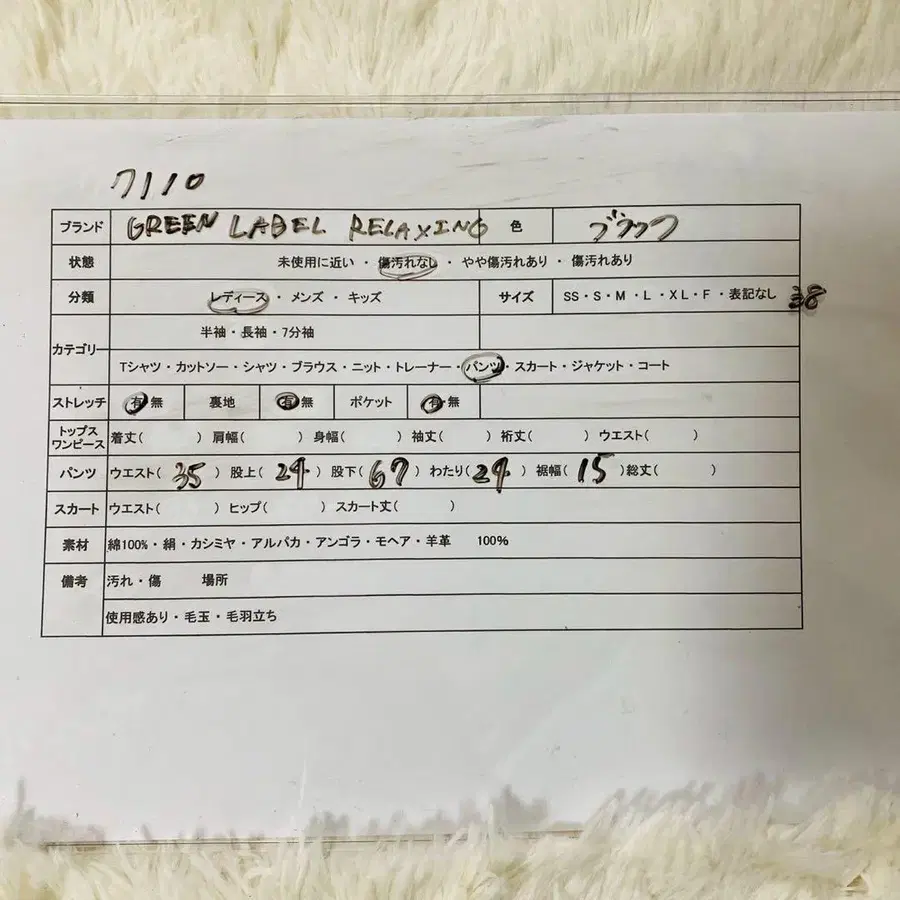 7110
ブランド GREEN LABEL RELAXING 色 ブラック
状態 未使用に近い ・ 傷汚れなし ・ やや傷汚れあり ・ 傷汚れあり
分類 レディース ・ メンズ ・ キッズ サイズ SS・S・M・L・XL・F・表記なし 38
半袖・長袖・7分袖
カテゴリー
Tシャツ・カットソー・シャツ・ブラウス・ニット・トレーナー・パンツ・スカート・ジャケット・コート
ストレッチ 有・無 裏地 有・無 ポケット 有・無
トップス
ワンピース 着丈( ) 肩幅( ) 身幅( ) 袖丈( ) 裄丈( ) ウエスト( )
パンツ ウエスト( 35 ) 股上( 24 ) 股下( 67 ) わたり( 24 ) 裾幅( 15 ) 総丈( )
スカート ウエスト( ) ヒップ( ) スカート丈( )
素材 綿100%・絹・カシミヤ・アルパカ・アンゴラ・モヘア・羊革 100%
備考 汚れ・傷 場所
使用感あり・毛玉・毛羽立ち